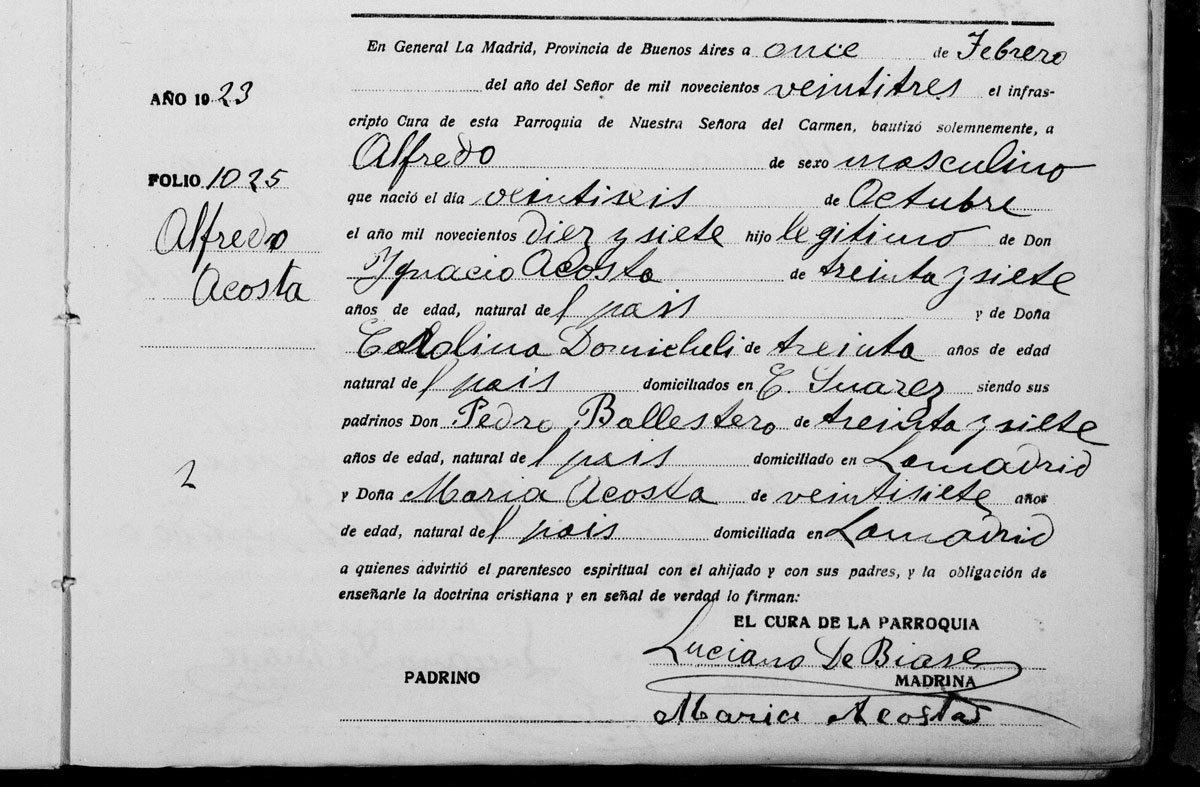 En General La Madrid, Provincia de Buenos Aires a once de Febrero
del año del Señor de mil novecientos veintitres el infras-
cripto Cura de esta Parroquia de Nuestra Señora del Carmen, bautizó solemnemente, a
Alfredo de sexo masculino
que nació el día veintiseis de Octubre
el año mil novecientos diez y siete hijo legitimo de Don
Ygnacio Acosta de treinta y siete
años de edad, natural del pais y de Doña
Carolina Domicheli de treinta años de edad
natural del pais domiciliados en C. Suarez siendo sus
padrinos Don Pedro Ballestero de treinta y siete
años de edad, natural del pais domiciliado en Lamadrid
y Doña Maria Acosta de veintisiete años
de edad, natural del pais domiciliada en Lamadrid
a quienes advirtió el parentesco espiritual con el ahijado y con sus padres, y la obligación de
enseñarle la doctrina cristiana y en señal de verdad lo firman:
EL CURA DE LA PARROQUIA
Luciano De Biase
PADRINO MADRINA
Maria Acosta
AÑO 1923
FOLIO 1025
Alfredo
Acosta
2